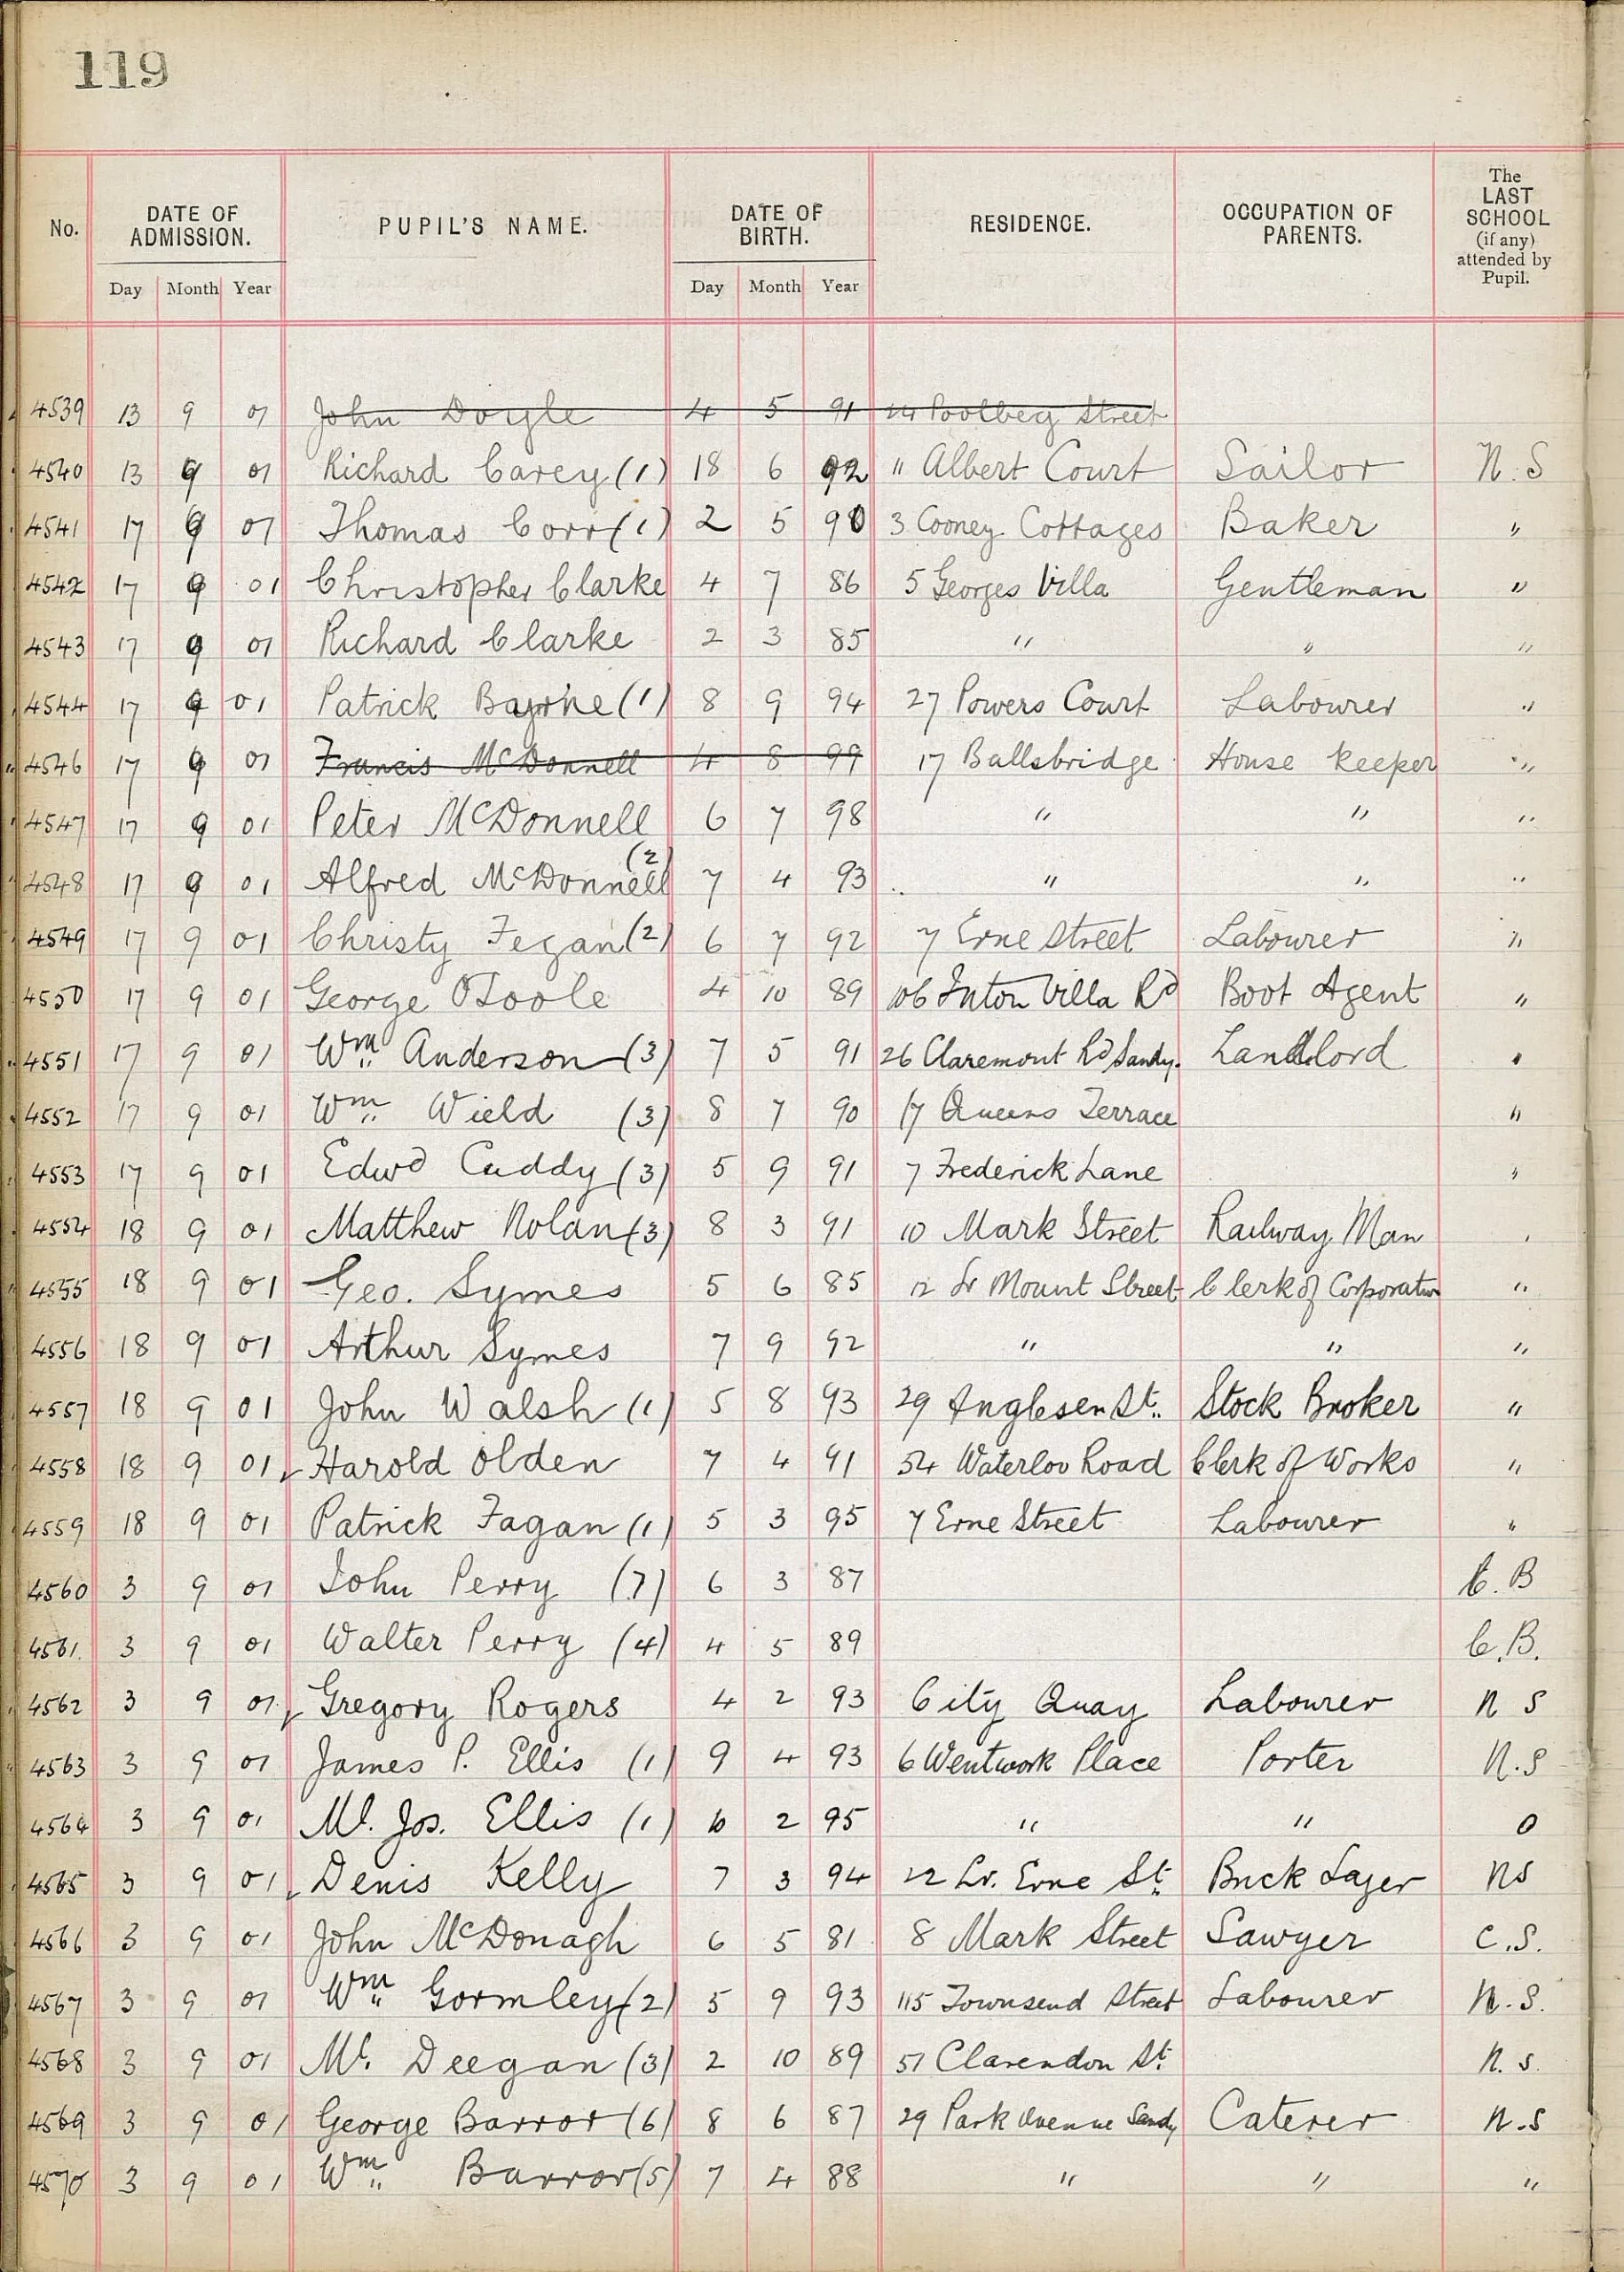 119
No. DATE OF ADMISSION. PUPIL'S NAME. DATE OF BIRTH. RESIDENCE. OCCUPATION OF PARENTS. The LAST SCHOOL (if any) attended by Pupil.
Day Month Year Day Month Year
4539 13 9 01 John Doyle 4 5 91 14 Poolbeg Street
4540 13 9 01 Richard Carey (1) 18 6 92 " Albert Court Sailor N.S
4541 17 9 01 Thomas Corr (1) 2 5 90 3 Cooney Cottages Baker "
4542 17 9 01 Christopher Clarke 4 7 86 5 Georges Villa Gentleman "
4543 17 9 01 Richard Clarke 2 3 85 " " "
4544 17 9 01 Patrick Byrne (1) 8 9 94 27 Powers Court Labourer "
4546 17 9 01 Francis McDonnell 4 8 99 17 Ballsbridge House Keeper "
4547 17 9 01 Peter McDonnell 6 7 98 " " "
4548 17 9 01 Alfred McDonnell (2) 7 4 93 " " "
4549 17 9 01 Christy Fegan (2) 6 7 92 7 Erne Street Labourer "
4550 17 9 01 George OToole 4 10 89 106 Villa Rd Boot Agent "
4551 17 9 01 Wm Anderson (3) 7 5 91 26 Claremont Rd Sandy. Landlord "
4552 17 9 01 Wm Wield (3) 8 7 90 17 Queens Terrace "
4553 17 9 01 Edwd Cuddy (3) 5 9 91 7 Frederick Lane "
4554 18 9 01 Matthew Nolan (3) 8 3 91 10 Mark Street Railway Man "
4555 18 9 01 Geo. Symes 5 6 85 12 Lr Mount Street Clerk of Corporation "
4556 18 9 01 Arthur Symes 7 9 92 " " "
4557 18 9 01 John Walsh (1) 5 8 93 29 Anglesen St. Stock Broker "
4558 18 9 01 Harold Olden 7 4 91 54 Waterloo Road Clerk of Works "
4559 18 9 01 Patrick Fagan (1) 5 3 95 7 Erne Street Labourer "
4560 3 9 01 John Perry (7) 6 3 87 C.B
4561 3 9 01 Walter Perry (4) 4 5 89 C.B.
4562 3 9 01 Gregory Rogers 4 2 93 City Quay Labourer N S
4563 3 9 01 James P. Ellis (1) 9 4 93 6 Wentwork Place Porter N.S
4564 3 9 01 Ml. Jos. Ellis (1) 6 2 95 " " 0
4565 3 9 01 Denis Kelly 7 3 94 22 Lr. Erne St. Brick Layer NS
4566 3 9 01 John McDonagh 6 5 81 8 Mark Street Sawyer C.S.
4567 3 9 01 Wm Gormley (2) 5 9 93 115 Townsend Street Labourer N.S.
4568 3 9 01 Ml. Deegan (3) 2 10 89 51 Clarendon St. N.S.
4569 3 9 01 George Barror (6) 8 6 87 29 Park Avenue Sandy Caterer N.S
4570 3 9 01 Wm Barror (5) 7 4 88 " " "